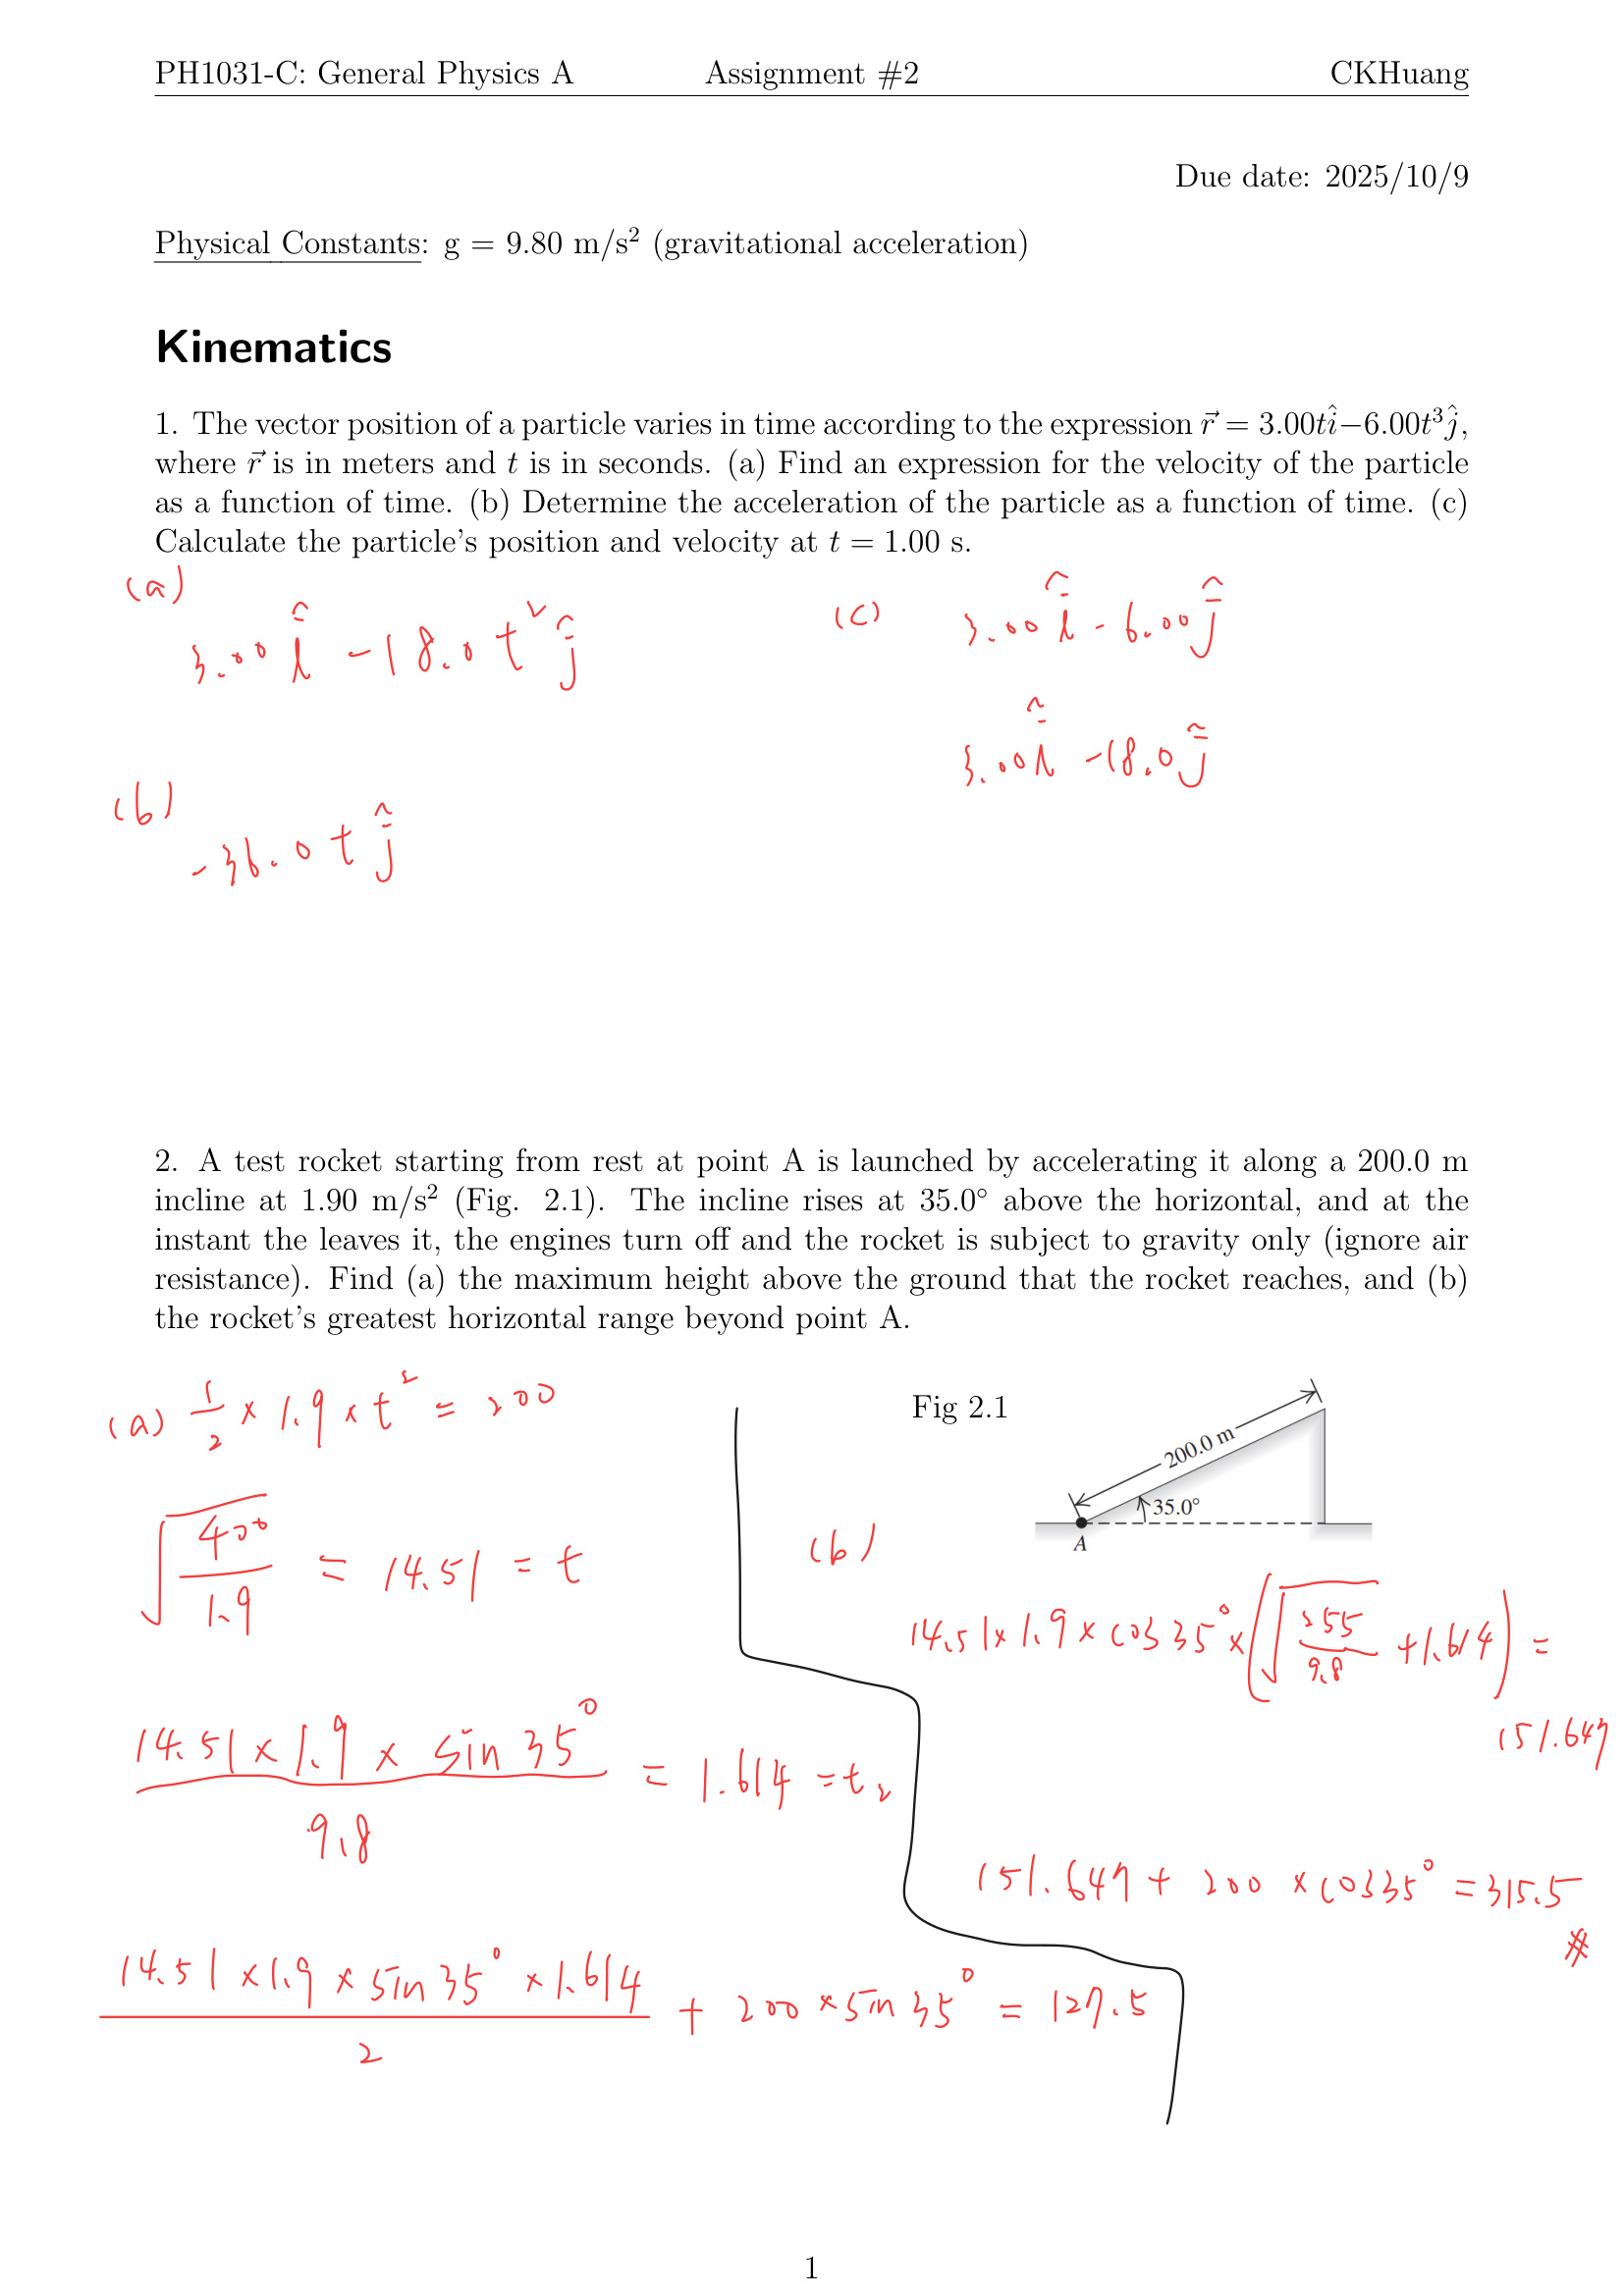 PH1031-C: General Physics A Assignment #2 CKHuang
Due date: 2025/10/9
Physical Constants: g = 9.80 m/s² (gravitational acceleration)
Kinematics
1. The vector position of a particle varies in time according to the expression r⃗ = 3.00tî−6.00t³ĵ,
where r⃗ is in meters and t is in seconds. (a) Find an expression for the velocity of the particle
as a function of time. (b) Determine the acceleration of the particle as a function of time. (c)
Calculate the particle's position and velocity at t = 1.00 s.
(a)
3.00 î - 18.0 t² ĵ
(b)
-36.0 t ĵ
(c) 3.00 î - 6.00 ĵ
3.00 î - 18.0 ĵ
2. A test rocket starting from rest at point A is launched by accelerating it along a 200.0 m
incline at 1.90 m/s² (Fig. 2.1). The incline rises at 35.0° above the horizontal, and at the
instant the leaves it, the engines turn off and the rocket is subject to gravity only (ignore air
resistance). Find (a) the maximum height above the ground that the rocket reaches, and (b)
the rocket's greatest horizontal range beyond point A.
(a) 1/2 × 1.9 × t² = 200
√(400/1.9) = 14.51 = t
14.51 × 1.9 × sin 35° / 9.8 = 1.614 = t₂
14.51 × 1.9 × sin 35° × 1.614 / 2 + 200 × sin 35° = 127.5
Fig 2.1
200.0 m
35.0°
A
(b)
14.51 × 1.9 × cos 35° × (√(255/9.8) + 1.614) =
151.647
151.647 + 200 × cos 35° = 315.5
#
1